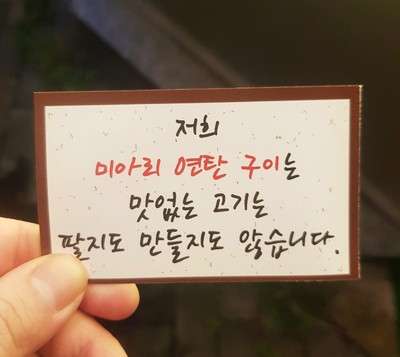 저희
미아리 연탄 구이는
맛없는 고기는
팔지도 만들지도 않습니다.